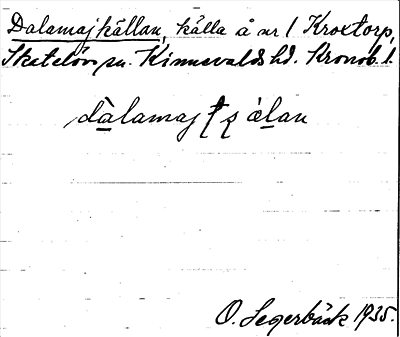 Dalamajkällan, källa å nr 1 Kroxtorp,
Skatelöv sn. Kinnevalds hd. Kronob. l.
O. Segerbäck 1935.